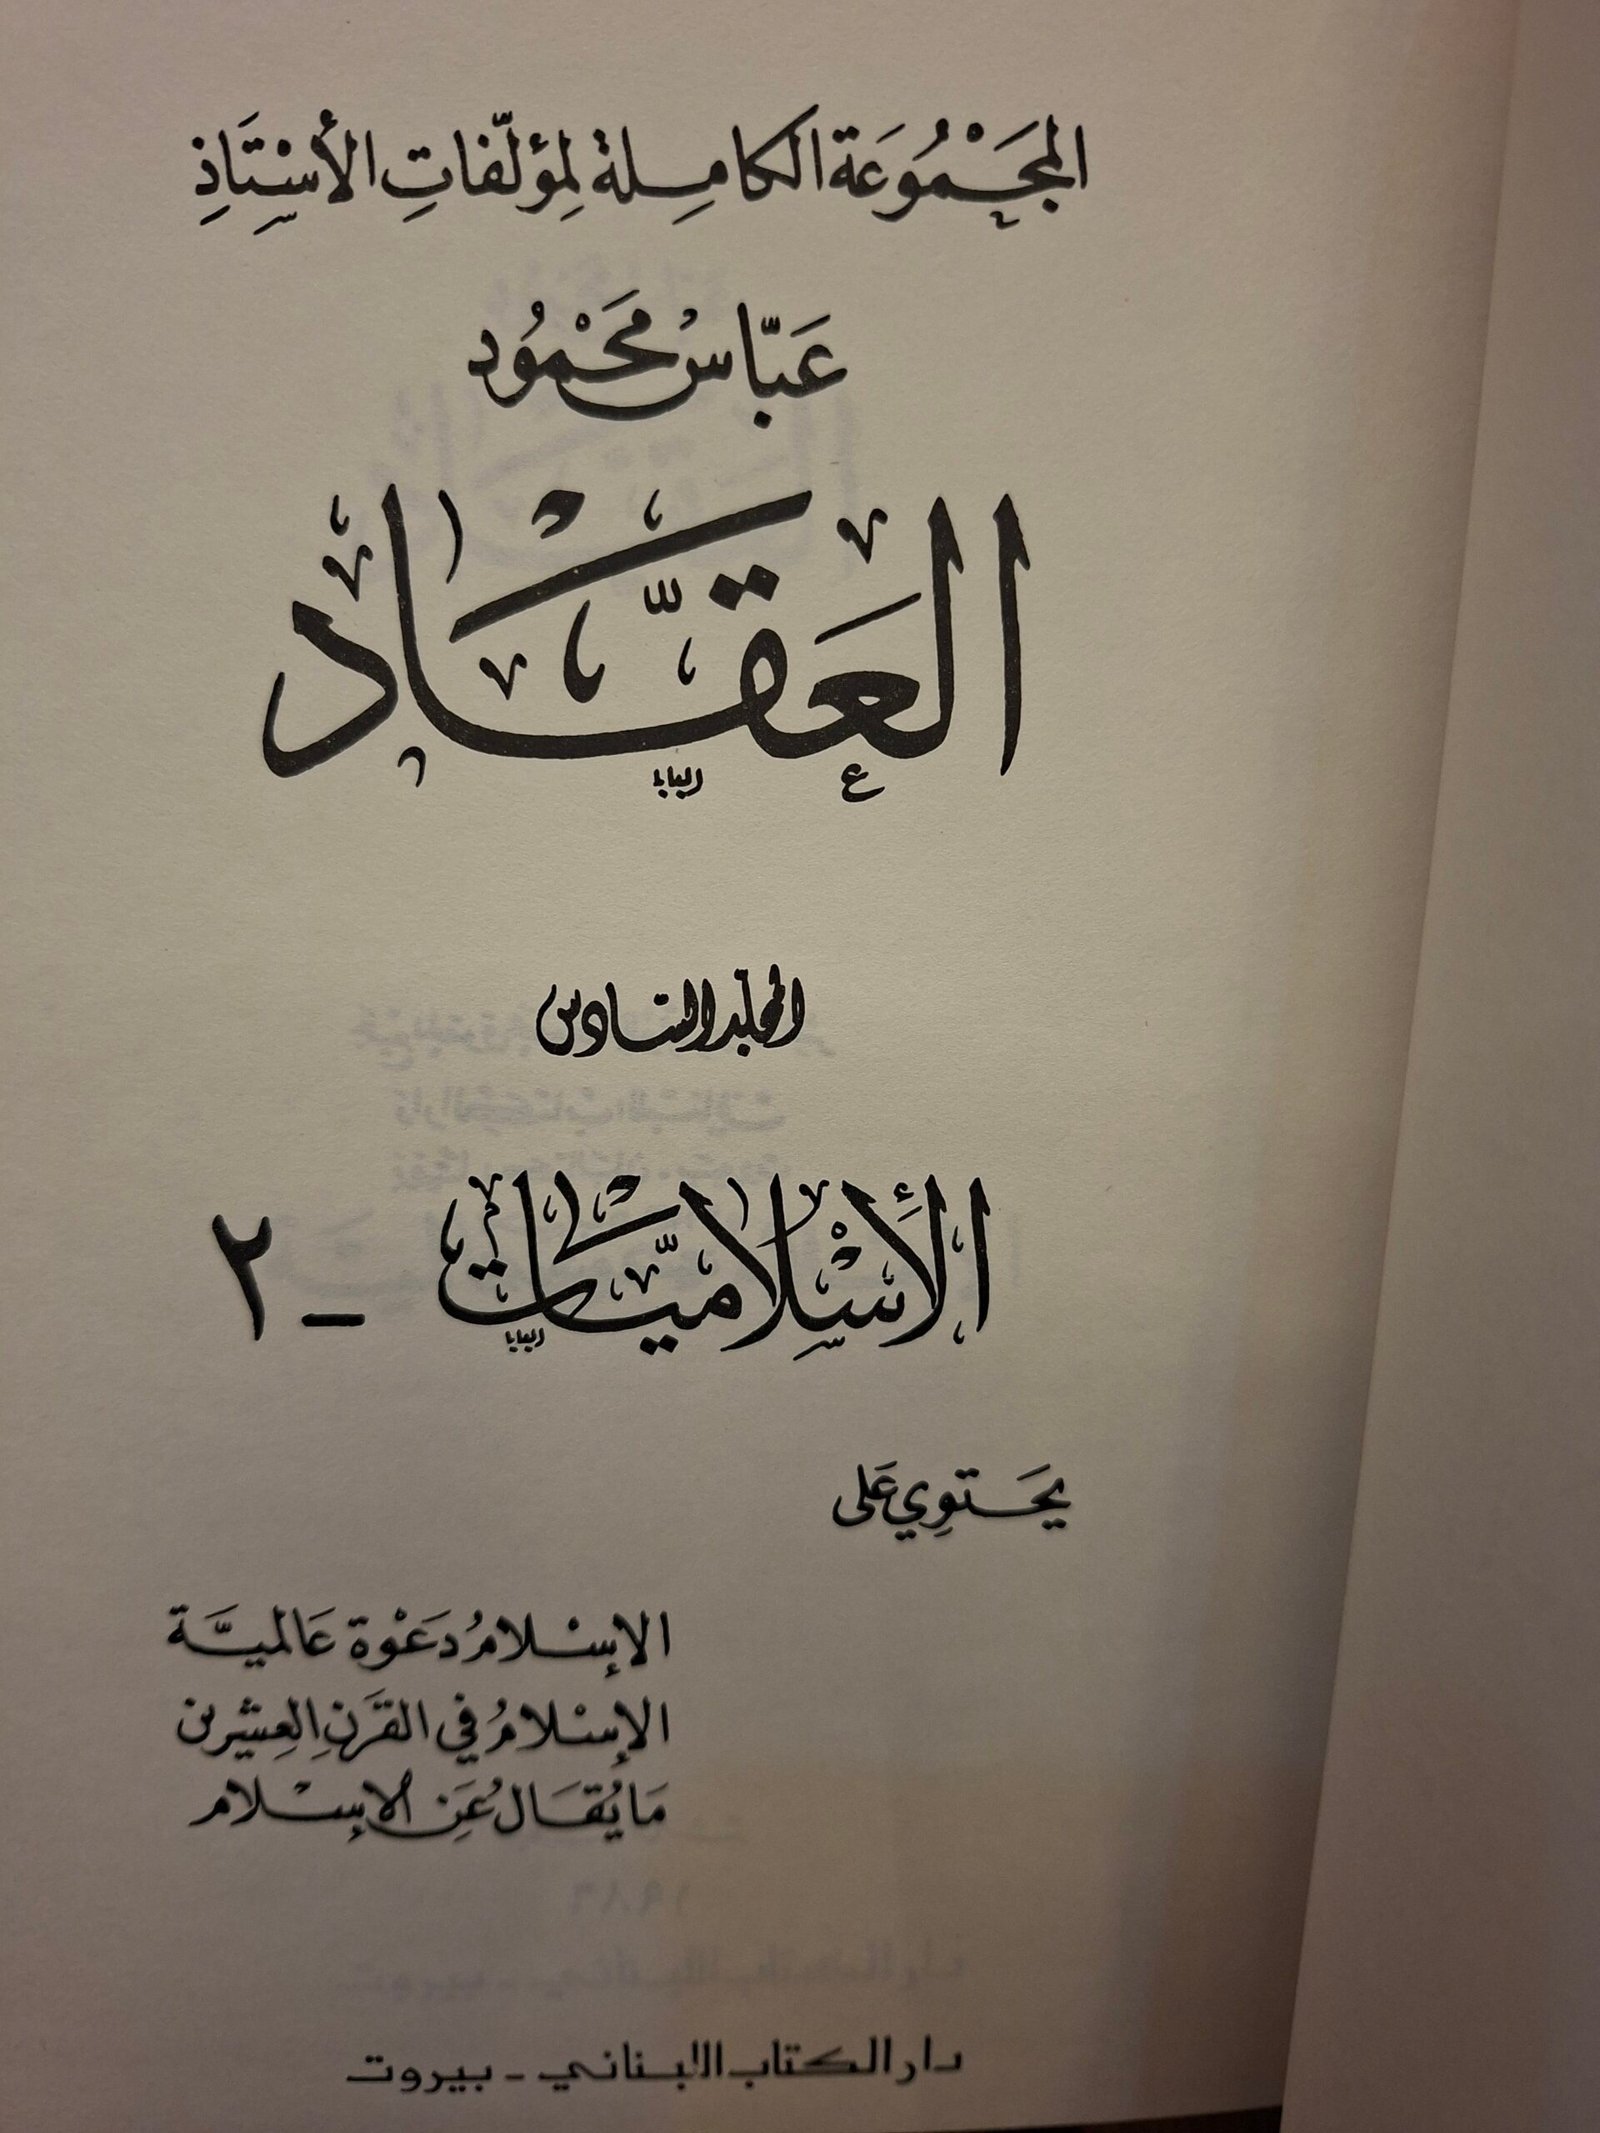 المَجَمْوُعَة الكامِلة لِمؤلّفاتِ الأسْتَاذِ
عَبّاسْ محَمْوُد
العَقَّاد
البابا
المجلد السادس
الأِسْلاميَّات - ٢
البابا
يحَتوِي عَلى
الإسْلامُ دَعْوة عَالميَّة
الإسْلامُ في القَرنِ العِشرين
مَا يُقَالُ عَن الإسْلام
دار الكتاب اللبناني - بيروت
١٩٨٦